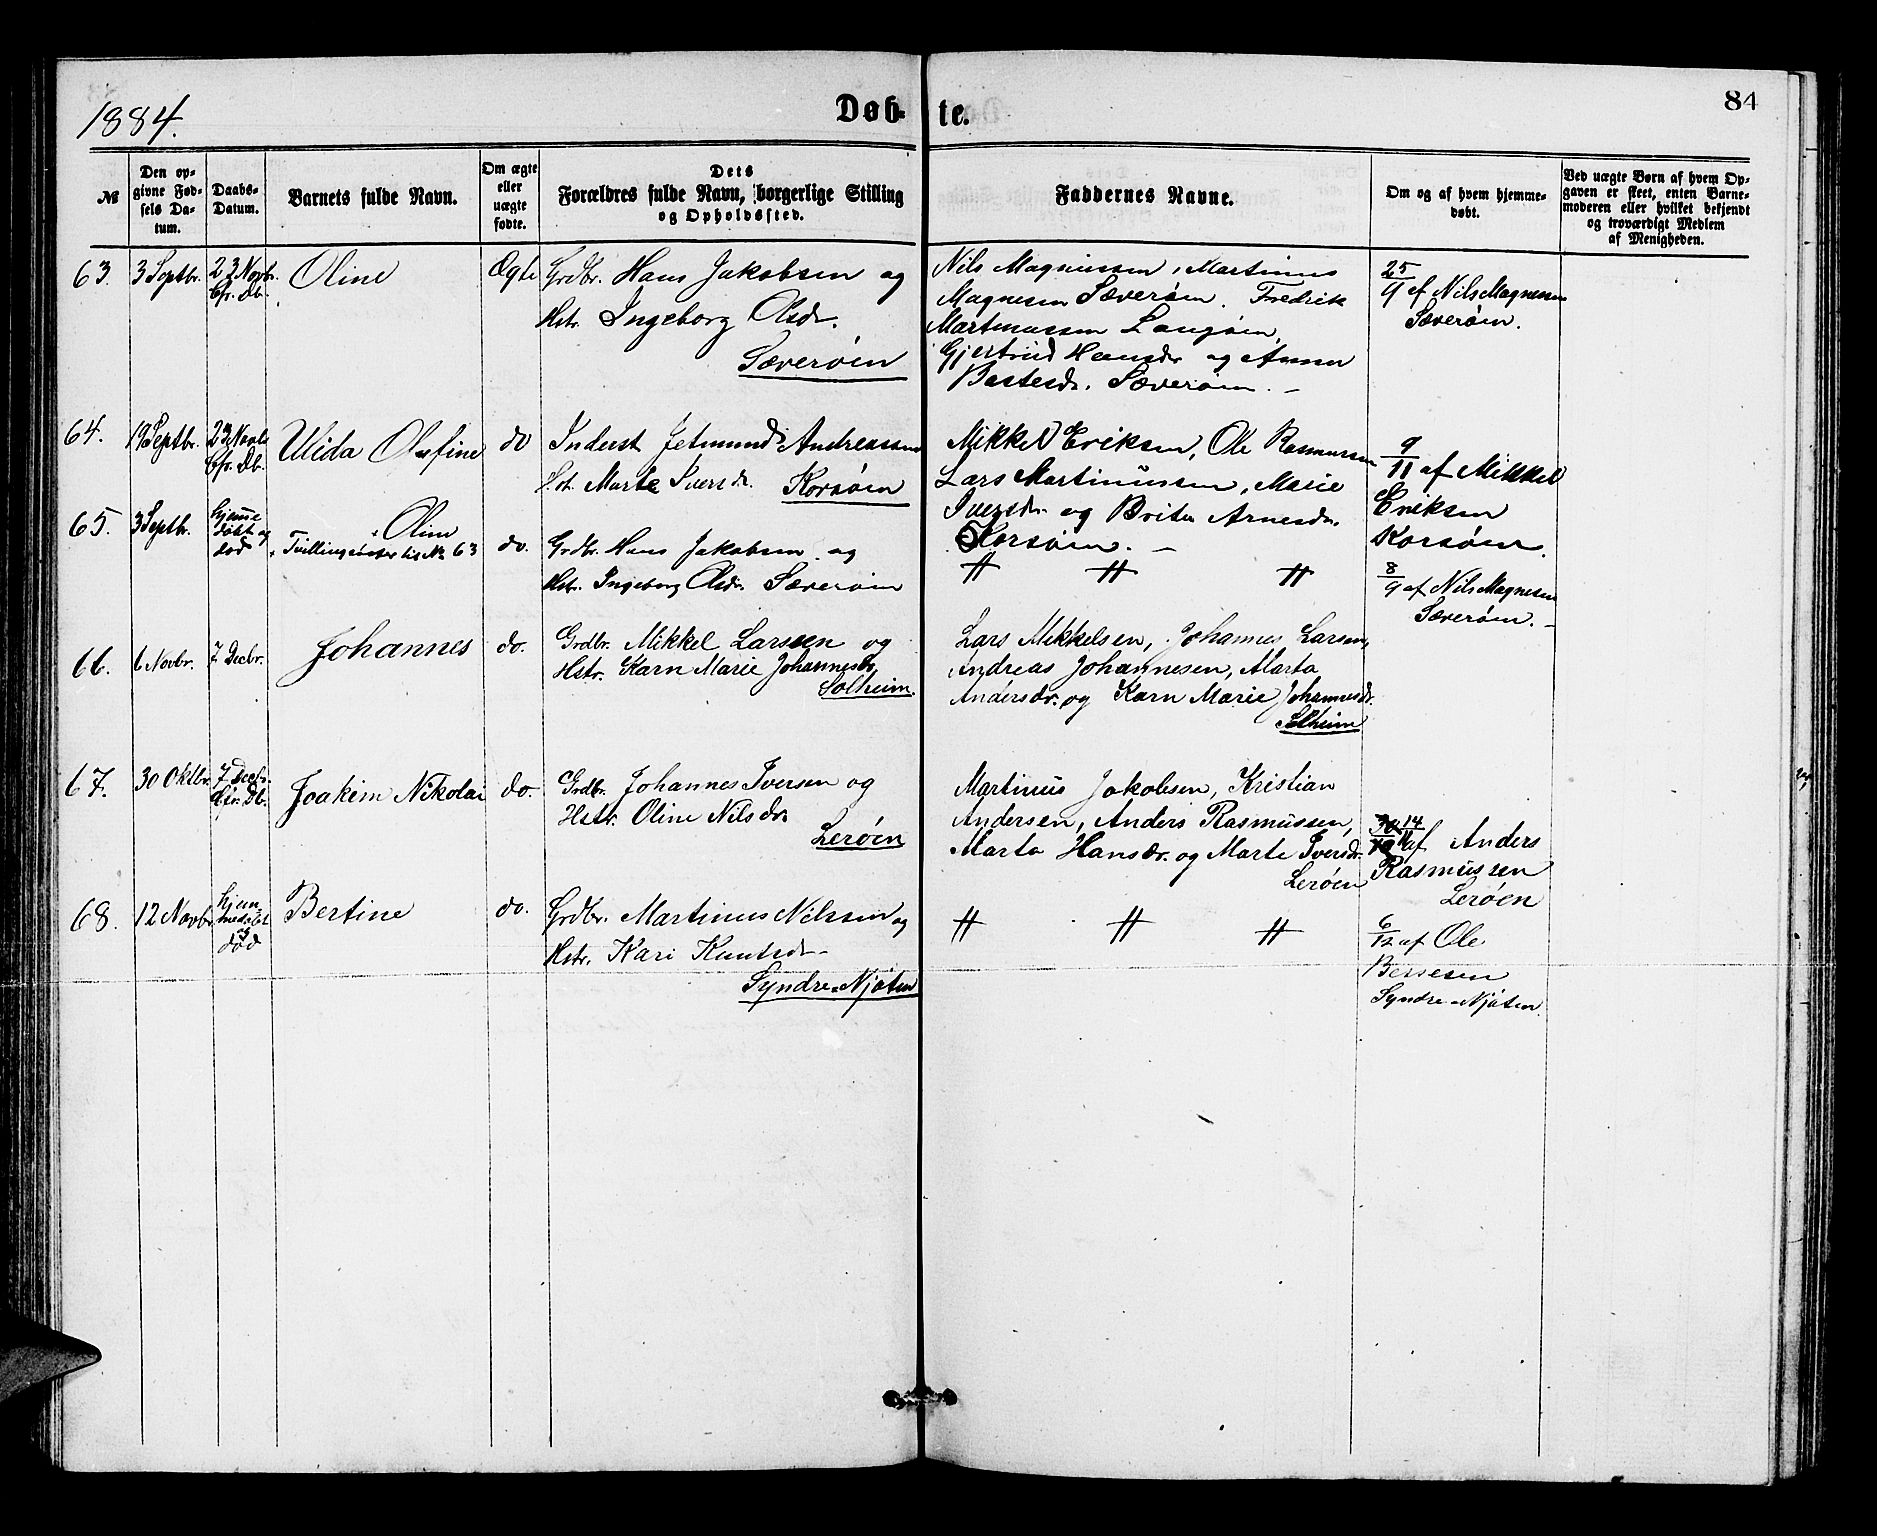 1884.
Døb-
te.
84
№
Den op-
givne Fød-
sels Da-
tum.
Daabs-
Datum.
Barnets fulde Navn.
Om ægte
eller
uægte
fødte.
Dets
Forældres fulde Navn, borgerlige Stilling
og Opholdssted.
Faddernes Navne.
Om og af hvem hjemme-
døbt.
Ved uægte Børn af hvem Op-
gaven er skeet, enten Barne-
moderen eller hvilket bekjendt
og troværdigt Medlem
af Menigheden.
63.
3 Septbr.
23 Novbr.
Cfr. Db.
Oline
Ægte
Grdbr. Hans Jakobsen og
Hstr. Ingeborg Olsdr.
Sæverøen
Nils Magnussen, Martinus
Magnesen Sæverøen. Fredrik
Martinussen Langøen,
Gjertrud Hansdr. og Anna
Bastesdr. Sæverøen. –
25/9 af Nils Magnesen
Sæverøen.
64.
19 Septbr.
23 Novbr
Cfr. Db.
Ulida Olufine
do
Inderst Jetmund Andreassen
H. Marte Iversdr. Korsøen
Mikkel Eriksen, Ole Rasmussen
Lars Martinussen, Marie
Iversdr. og Brita Arnesdr.
Korsøen. –
9/11 af Mikkel
Eriksen
Korsøen.
65.
3 Septbr.
hjemme
døbt og
død
Oline
Tvillingsøster til No 63
do.
Grdbr. Hans Jakobsen og
Hstr. Ingeborg Olsdr. Sæverøen
〃 〃 〃
8/9 af Nils Magnesen
Sæverøen. –
66.
6 Novbr.
7 Decbr.
Johannes
do.
Grdbr. Mikkel Larsen og
Hstr. Karn Marie Johannesdr.
Solheim.
Lars Mikkelsen, Johannes Larsen,
Andreas Johannesen, Marta
Andersdr. og Karn Marie Johannesdr.
Solheim
67.
30 Oktbr.
7 Decbr.
Cfr. Db.
Joakim Nikolai
do.
Grdbr. Johannes Iversen og
Hstr. Oline Nilsdr.
Lerøen
Martinus Jakobsen, Kristian
Andersen, Anders Rasmussen,
Marta Hansdr. og Marte Iversdr.
Lerøen
14/11 af Anders
Rasmussen
Lerøen
68.
12 Novbr.
hjem-
medøbt
og
død
Bertine
do.
Grdbr. Martinus Nilssen og
Hstr. Kari Knutsdr.
Syndre-Njøten
〃 〃 〃
6/12 af Ole
Bessesen
Syndre-Njøten.